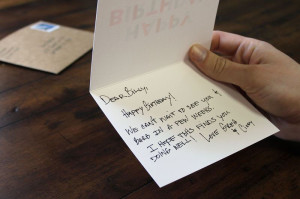 HAPPY
BIRTHDAY
DEAR BILLY,
HAPPY BIRTHDAY!
WE CAN'T WAIT TO SEE YOU &
IN A FEW WEEKS.
I HOPE THIS FINDS YOU
DOING WELL! LOVE
&